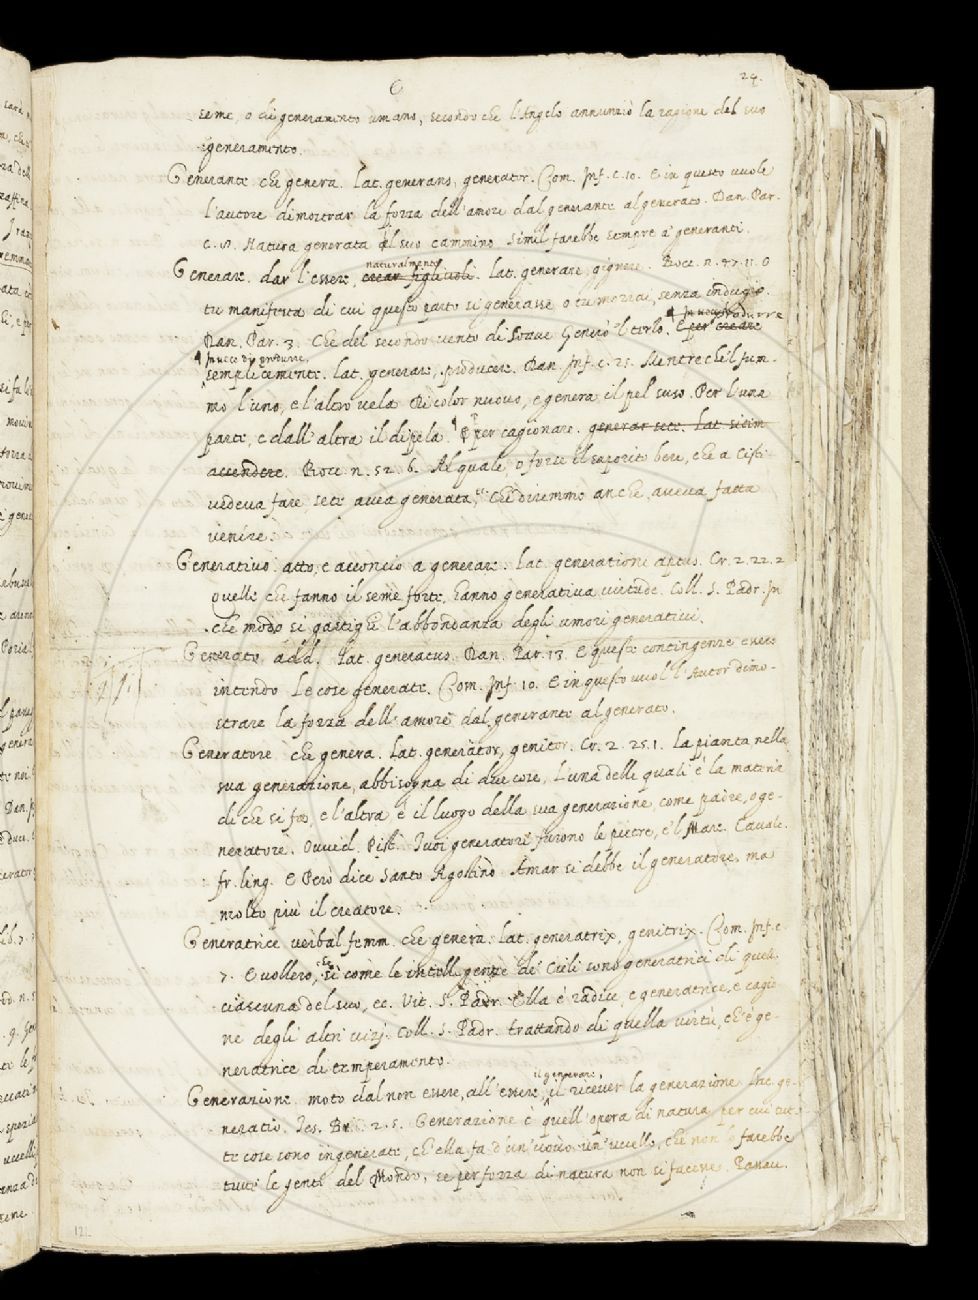 G 24.
seme, o di generamento umano, secondo che l'Angelo annunziò la ragione del suo
generamento.
Generante che genera. Lat. generans, generator. Com. Inf. c. 10. E in questo vuole
l'autore dimostrar la forza dell'amore dal generante al generato. Dan. Par.
c. 8. Natura generata il suo cammino simil farebbe sempre a' generanti.
naturalmente
Generare. dar l'essere, crear figliuoli. Lat. generare, gignere. Bocc. n. 77. 11. O
tu manifesta di cui questo parto si generasse o tu morrai senza indugio.
In vece di produrre
Dan. Par. 3. Che del secondo vento di Soave Generò 'l terzo. E per creare
In vece di produrre,
semplicemente. Lat. generare, producere. Dan. Inf. c. 25. Mentre che 'l fum-
mo l'uno, e l'altro vela Di color nuovo, e genera il pel suso. Per l'una
parte, e dall'altra il dipela. E per cagionare. generar sete. Lat. sitim
accendere. Bocc. n. 52. 6. Al quale, o forse il saporito bere, che a Cisti
vedeva fare sete avea generata, che diremmo anche, aveva fatta
venire.
Generativo. atto, e acconcio a generare. Lat. generationi aptus. Cr. 2. 22. 2
quelle che fanno il seme forte, hanno generativa virtude. Coll. S. Padr. In
che modo si gastighi l'abbondanza degli umori generativi.
Generato add. Lat. generatus. Dan. Par. 13. E queste contingenze essere
intendo Le cose generate. Com. Inf. 10. E in questo vuol l'Autor dimo-
strare la forza dell'amore dal generante al generato.
Generatore che genera. Lat. generator, genitor. Cr. 2. 25. 1. La pianta nella
sua generazione, abbisogna di due cose, l'una delle quali è la materia
di che si fa, e l'altra è il luogo della sua generazione, come padre, o ge-
neratore. Ovvid. Pist. I tuoi generatori furono le pietre, e 'l Mare. Cavalc.
fr. ling. E Però dice Santo Agostino Amar si debbe il generatore, ma
molto più il creatore.
Generatrice verbal femm. che genera. Lat. generatrix, genitrix. Com. Inf. c.
7. E vollero, sì come le intell. gentie de' Cieli sono generatrici di quei
ciascuna del suo, ec. Vit. S. Padr. Ella è radice, e generatrice, e cagio
ne degli altri vizj. Coll. S. Padr. trattando di quella virtù, ch'è ge-
neratrice di temperamento.
il generare,
Generazione. moto dal non essere, all'essere, il ricever la generazione. Lat. ge-
neratio. Tes. Br. 2. 5. Generazione è quell'opera di natura, per cui tut-
te cose sono ingenerate, ch'ella fa d'un'uovo un'uccello, che non lo farebbe
tutte le genti del Mondo, se per forza di natura non si facesse. Passav.
121.